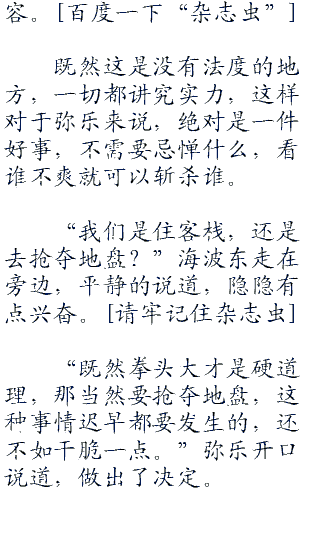 容。[百度一下“杂志虫”]
既然这是没有法度的地
方，一切都讲究实力，这样
对于弥乐来说，绝对是一件
好事，不需要忌惮什么，看
谁不爽就可以斩杀谁。
“我们是住客栈，还是
去抢夺地盘？”海波东走在
旁边，平静的说道，隐隐有
点兴奋。[请牢记住杂志虫]
“既然拳头大才是硬道
理，那当然要抢夺地盘，这
种事情迟早都要发生的，还
不如干脆一点。”弥乐开口
说道，做出了决定。